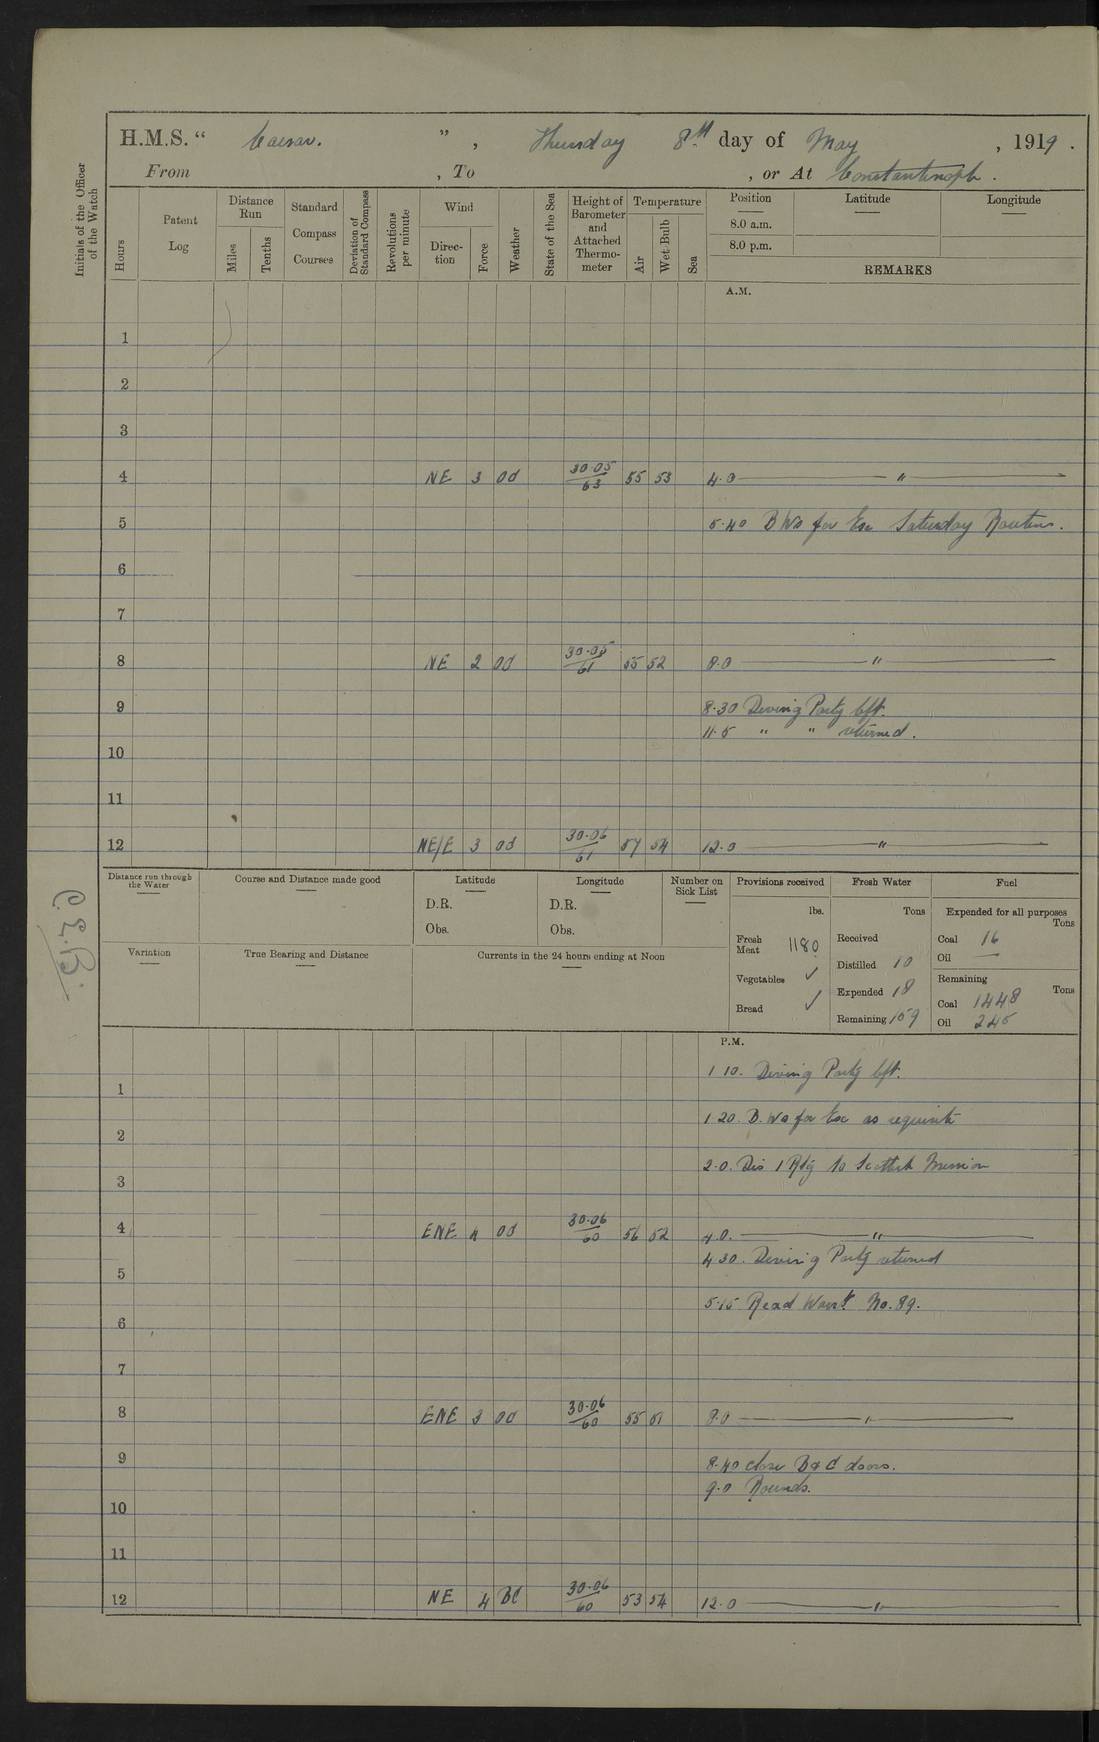 H.M.S. " Caesar. ", Thursday 8th day of May, 1919.
From , To , or At Constantinople.
Initials of the Officer of the Watch
Hours
Patent Log
Distance Run
Miles
Tenths
Standard Compass Courses
Deviation of Standard Compass
Revolutions per minute
Wind
Direc-tion
Force
Weather
State of the Sea
Height of Barometer and Attached Thermo-meter
Temperature
Air
Wet Bulb
Sea
Position Latitude Longitude
8.0 a.m.
8.0 p.m.
REMARKS
A.M.
1
2
3
4 NE 3 od 30·05/63 55 53 4·0 "
5 5·40 B Wd for Exc Saturday Routine.
6
7
8 NE 2 od 30·05/61 55 52 8·0 "
9 8·30 Diving Party left.
11·5 " " returned.
10
11
12 NE/E 3 od 30·06/61 57 54 12·0 "
Distance run through the Water
Course and Distance made good
Latitude
D.R.
Obs.
Longitude
D.R.
Obs.
Number on Sick List
Provisions received
lbs.
Fresh Meat 1180
Vegetables ✓
Bread ✓
Fresh Water
Tons
Received
Distilled 10
Expended 18
Remaining 169
Fuel
Expended for all purposes
Tons
Coal 16
Oil —
Remaining
Tons
Coal 1448
Oil 245
Variation
True Bearing and Distance
Currents in the 24 hours ending at Noon
C.E.B.
P.M.
1 1 10. Diving Party left.
2 1 20. B. Wd for Exc as requisite
3 2·0. Dis 1 Rtg to Scottish Mission
4 ENE 4 od 30·06/60 56 52 4.0. "
4 30. Diving Party returned
5
5·15 Read Warrt No. 89.
6
7
8 ENE 3 od 30·06/60 55 51 8·0 "
9 8·40 close B & C doors.
9·0 Rounds.
10
11
12 NE 4 BC 30·06/60 53 54 12·0 "